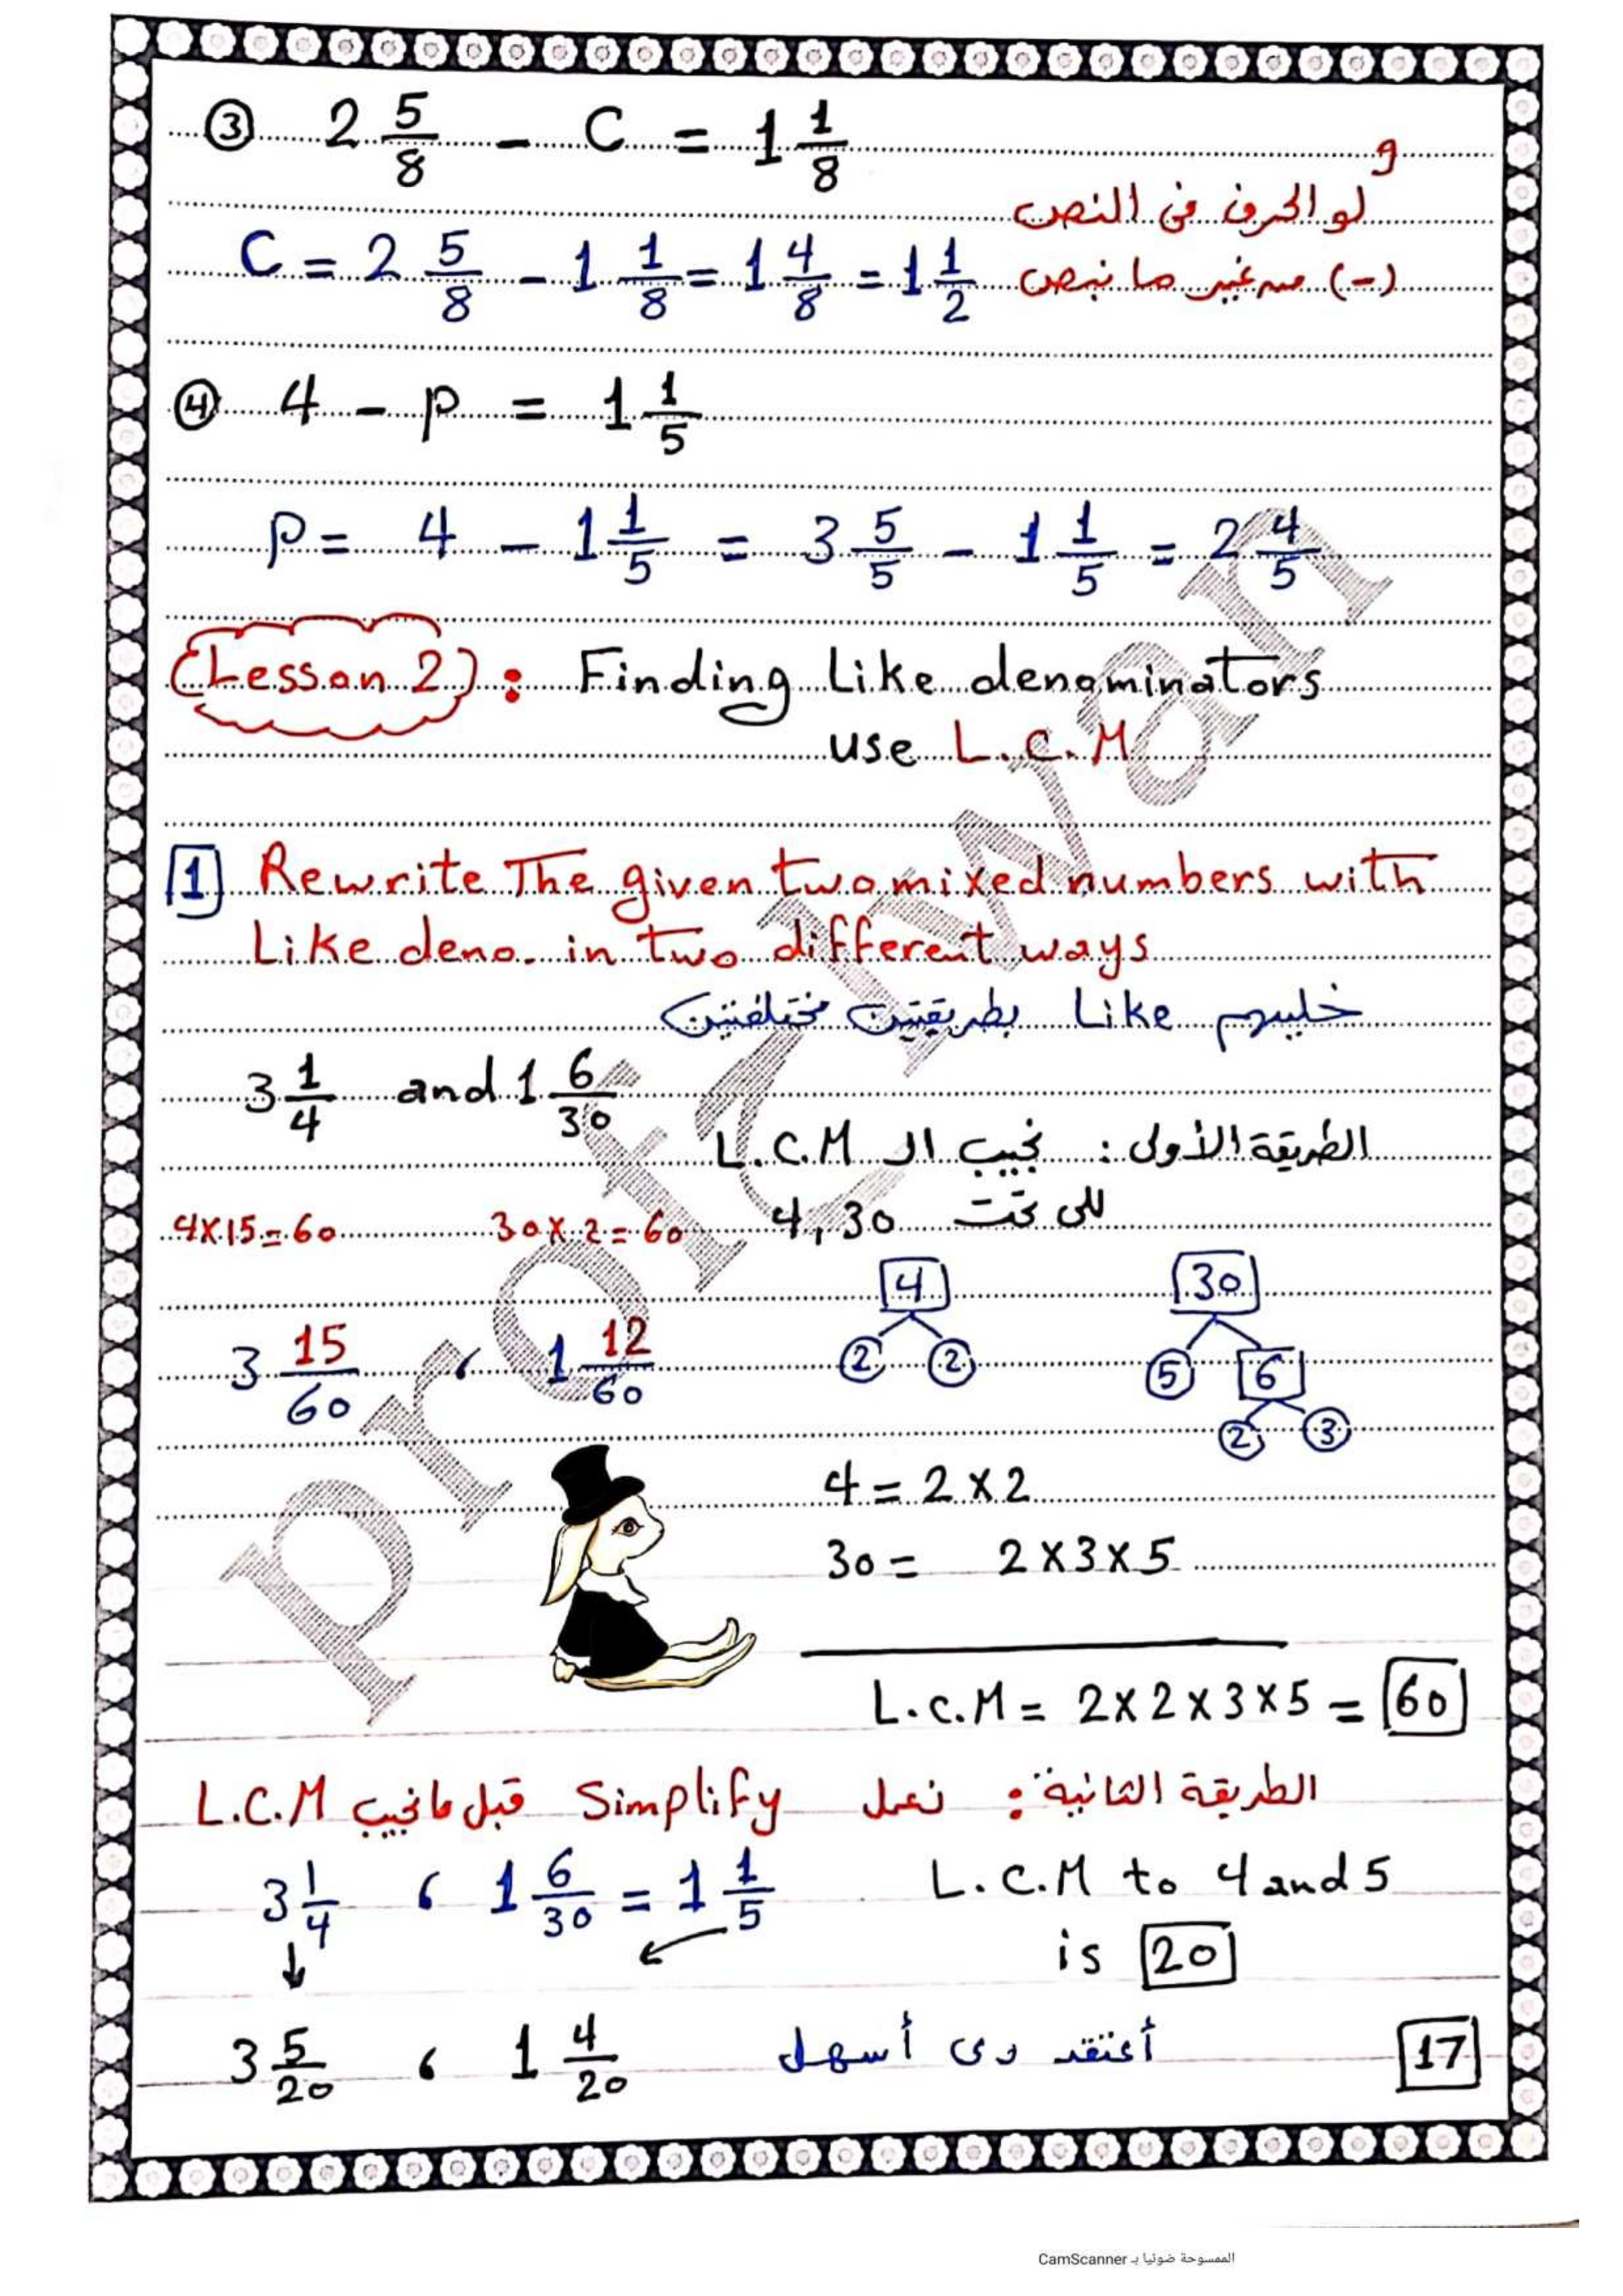 ③ 2 5/8 - C = 1 1/8
و
لو الحرف فى النص
C = 2 5/8 - 1 1/8 = 1 4/8 = 1 1/2 (-) من غير ما نبص
④ 4 - p = 1 1/5
p = 4 - 1 1/5 = 3 5/5 - 1 1/5 = 2 4/5
(Lesson 2) : Finding Like denominators
use L.C.M
1 Rewrite The given two mixed numbers with
Like deno. in two different ways
خليهم Like بطريقتين مختلفتين
3 1/4 and 1 6/30
الطريقة الأولى : نجيب الـ L.C.M
للى تحت 4, 30
4×15=60 30×2=60
4 30
3 15/60 ، 1 12/60
2 2 5 6
2 3
4 = 2×2
30 = 2×3×5
L.C.M = 2×2×3×5 = 60
الطريقة الثانية : نعمل Simplify قبل ما نجيب L.C.M
3 1/4 ، 1 6/30 = 1 1/5 L.C.M to 4 and 5
is 20
3 5/20 ، 1 4/20 أعتقد دى أسهل
17
الممسوحة ضوئيا بـ CamScanner